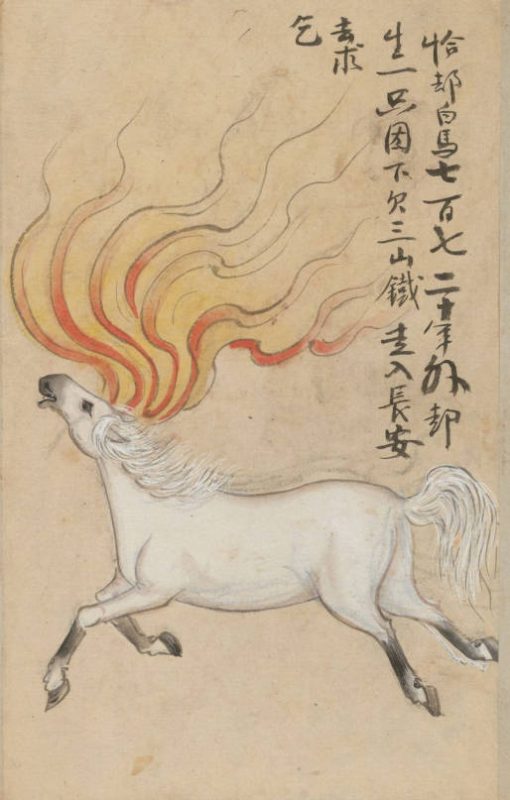 恰却白馬七百七二十年外却
生一只因下欠三山鐵走入長安
去求
乞